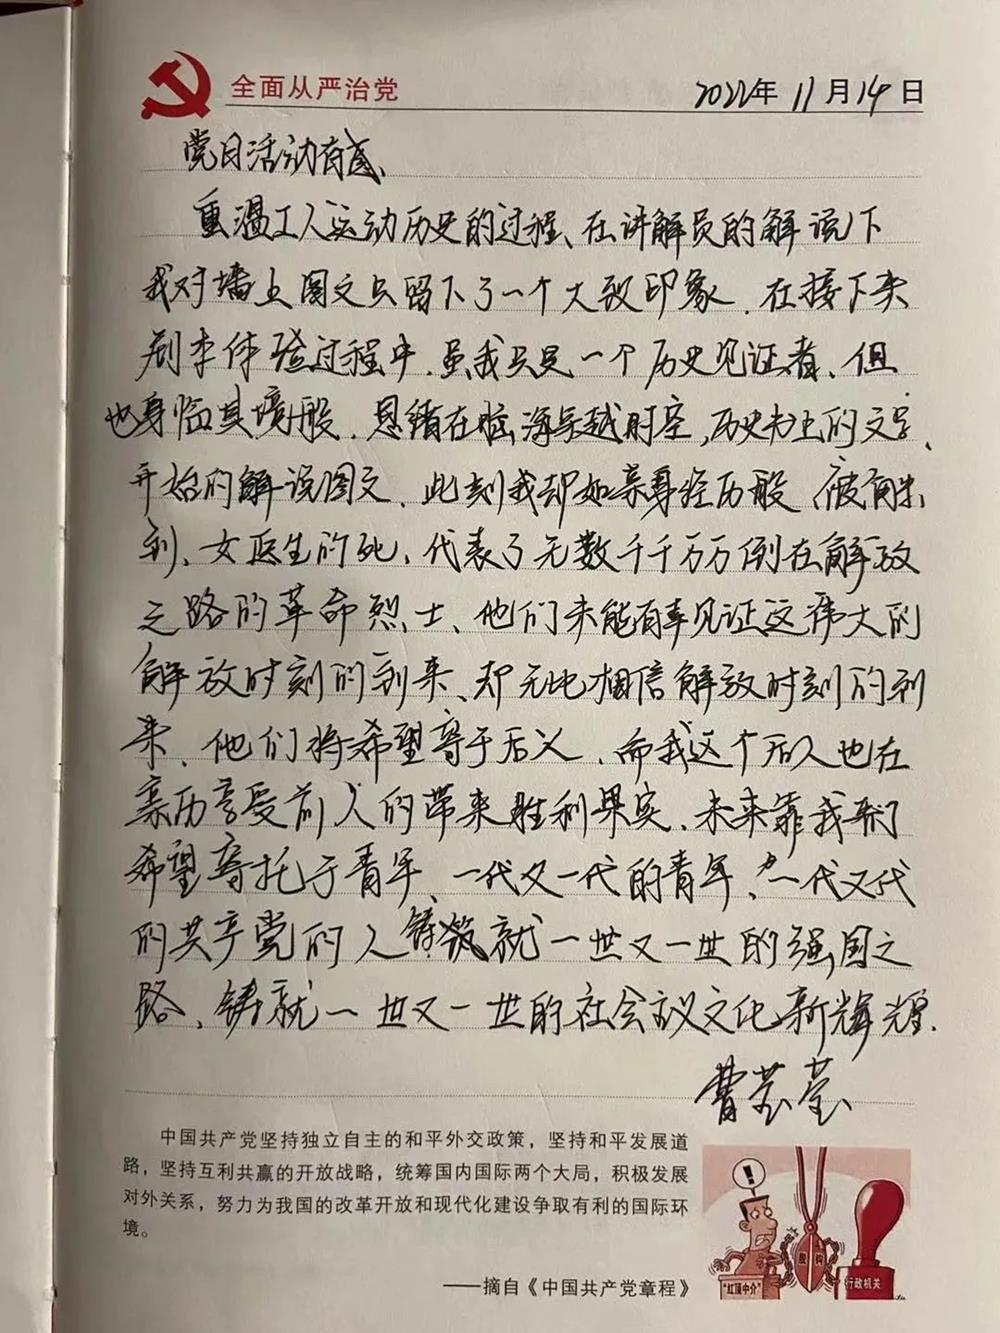 全面从严治党
2022年 11月14日
党日活动有感、
重温工人运动历史的过程、在讲解员的解说下
我对墙上图文只留下了一个大致印象．在接下来
剧本体验过程中．虽我只是一个历史见证者、但
也身临其境般．思绪在脑海穿越时空,历史书上的文字、
开始的解说图文．此刻我却如亲身经历般
利、女医生的死、代表了无数千千万万倒在解放
之路的革命烈士、他们未能有幸见证这伟大的
解放时刻的到来、却无比相信解放时刻的到
来、他们将希望寄于后人．而我这个后人也在
亲历享受前人的带来胜利果实．未来靠我们
希望寄托于青年、一代又一代的青年、一代又代
的共产党的人铸就一世又一世的强国之
路、铸就一世又一世的社会主义文化新辉煌.
曹 莹
中国共产党坚持独立自主的和平外交政策，坚持和平发展道
路，坚持互利共赢的开放战略，统筹国内国际两个大局，积极发展
对外关系，努力为我国的改革开放和现代化建设争取有利的国际环
境。
——摘自《中国共产党章程》
!
"红顶中介"
脱钩
行政机关